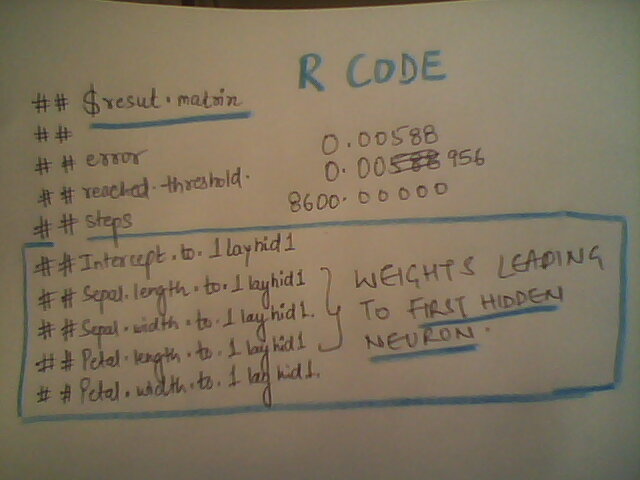 R CODE
## $resut.matrix
##
## error 0.00588
## reached.threshold. 0.00588 956
## steps 8600.00000
## Intercept.to.1layhid1
## Sepal.length.to.1layhid1
## Sepal.width.to.1layhid1.
## Petal.length.to.1layhid1
## Petal.width.to.1layhid1.
WEIGHTS LEADING
TO FIRST HIDDEN
NEURON.